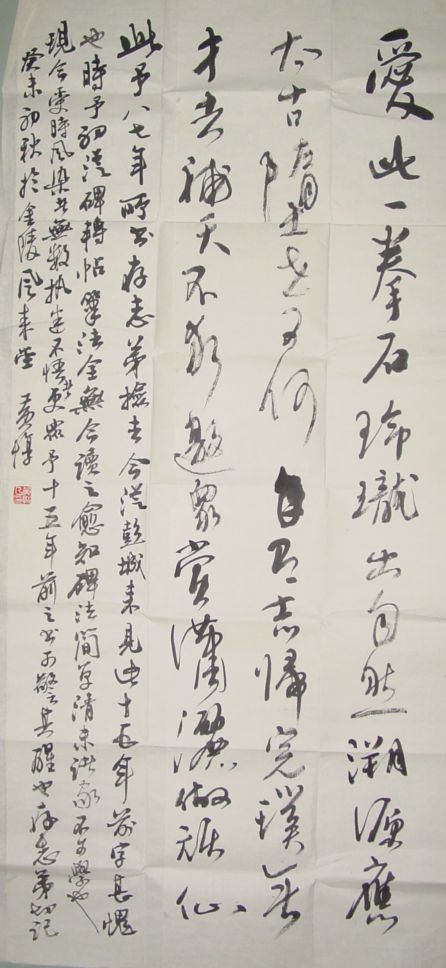 愛此一拳石玲瓏出自然溯源應
太古墮世又何年有志歸完璞無
才去補天不求邀眾賞瀟灑做頑仙
此予八七年所書存志弟撿去今從彭城來見此十五年前字甚愧
也時予初從碑轉帖筆法全無今讀之愈知碑法簡單清末諸家不可學也
現今受時風染者無數執迷不悟者更眾予十五年前之書可警其醒也存志弟切記
癸未初秋於金陵風來堂 黃惇